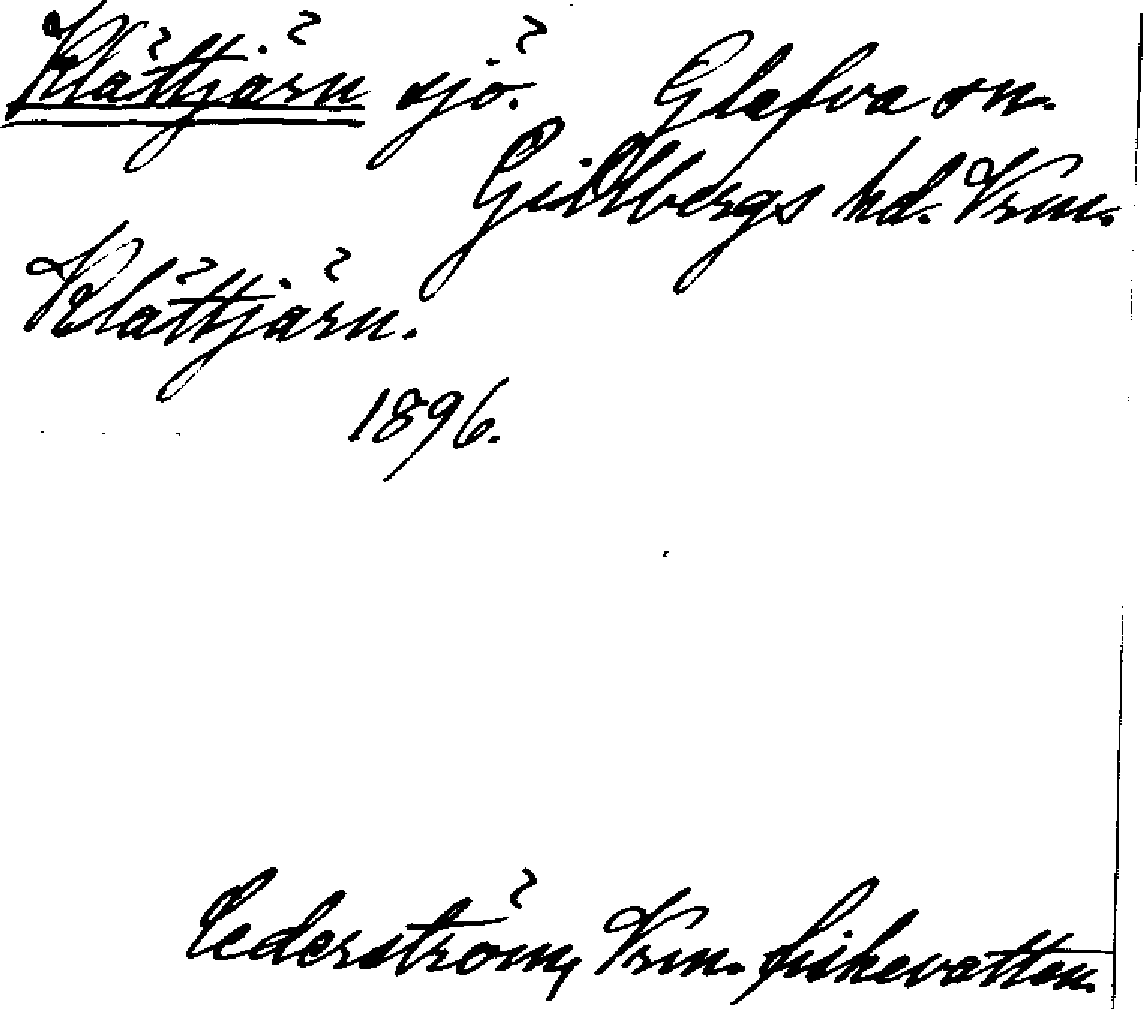 Klättjärn sjö. Glafva sn.
Gillbergs hd. Vrm.
Klättjärn.
1896.
Cederström, Vrm. fiskevatten.